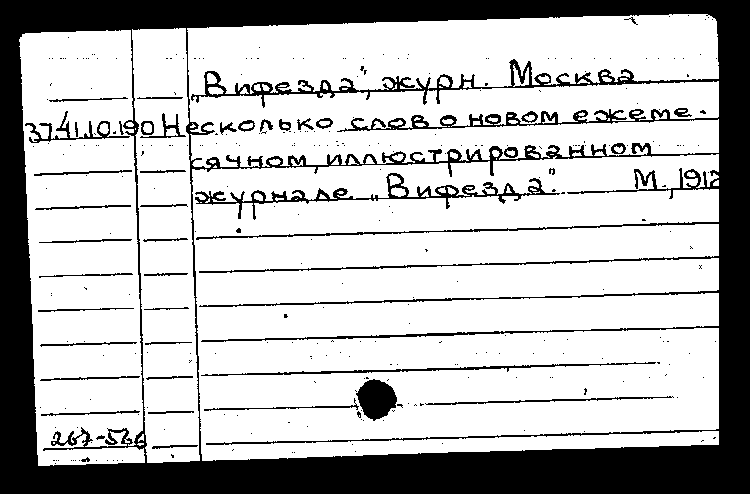 „Вифезда", журн. Москва
37.41.10.190 Несколько слов о новом ежеме-
сячном, иллюстрированном
журнале „Вифезда". М., 1912
267-566